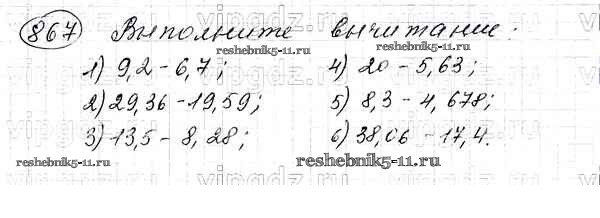 867 Выполните вычитание:
1) 9,2 - 6,7; 4) 20 - 5,63;
2) 29,36 - 19,59; 5) 8,3 - 4,678;
3) 13,5 - 8,28; 6) 38,06 - 17,4.
reshebnik5-11.ru
reshebnik5-11.ru
reshebnik5-11.ru
reshebnik5-11.ru